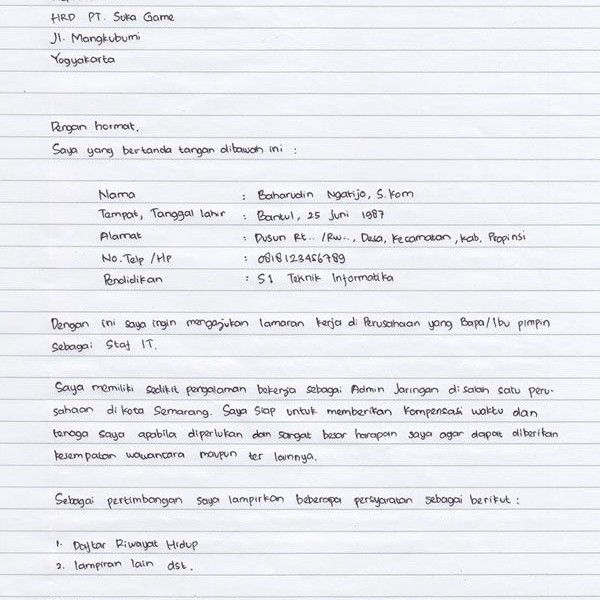 HRD PT. Suka Game
Jl. Mangkubumi
Yogyakarta
Dengan hormat,
Saya yang bertanda tangan dibawah ini :
Nama : Baharudin Ngatijo, S.Kom
Tempat, Tanggal lahir : Bantul, 25 Juni 1987
Alamat : Dusun Rt.. /Rw.., Desa, Kecamatan, Kab, Propinsi
No. Telp /Hp : 0818123456789
Pendidikan : S1 Teknik Informatika
Dengan ini saya ingin mengajukan lamaran kerja di Perusahaan yang Bapa/Ibu pimpin
sebagai Staf IT.
Saya memiliki sedikit pengalaman bekerja sebagai Admin Jaringan di salah satu peru-
sahaan di kota Semarang. Saya siap untuk memberikan kompensasi waktu dan
tenaga saya apabila diperlukan dan sangat besar harapan saya agar dapat diberikan
kesempatan wawancara maupun tes lainnya.
Sebagai pertimbangan saya lampirkan beberapa persyaratan sebagai berikut :
1. Daftar Riwayat Hidup
2. lampiran lain dst.